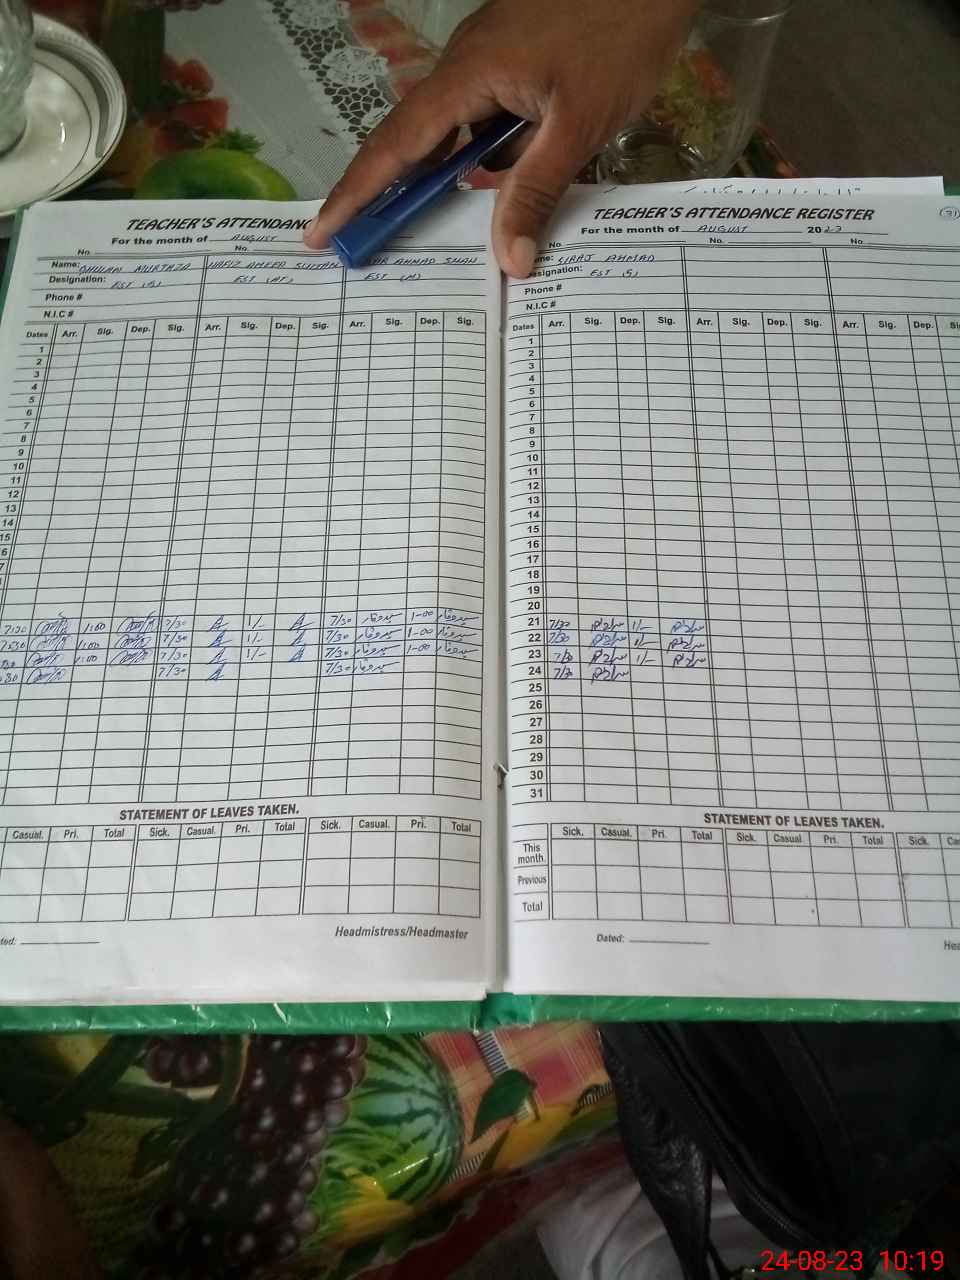 TEACHER'S ATTENDANC
For the month of AUGUST
No. No.
Name: GHULAM MURTAZA HAFIZ AMEER SULTAN AHMAD SHAH
Designation: EST (S) EST (AT) EST (M)
Phone #
N.I.C #
Dates Arr. Sig. Dep. Sig. Arr. Sig. Dep. Sig. Arr. Sig. Dep. Sig.
1
2
3
4
5
6
7
8
9
10
11
12
13
14
15
6
7
7/30 1:00 7/30 1/- 7/30 1-00
7/30 1:00 7/30 1/- 7/30 1-00
7/30 1:00 7/30 1/- 7/30 1-00
7/30 7/30
STATEMENT OF LEAVES TAKEN.
Casual. Pri. Total Sick. Casual. Pri. Total Sick. Casual. Pri. Total
ted:
Headmistress/Headmaster
TEACHER'S ATTENDANCE REGISTER
31
For the month of AUGUST 2023
No. No. No.
Name: SIRAJ AHMAD
Designation: EST (S)
Phone #
N.I.C #
Dates Arr. Sig. Dep. Sig. Arr. Sig. Dep. Sig. Arr. Sig. Dep.
1
2
3
4
5
6
7
8
9
10
11
12
13
14
15
16
17
18
19
20
21 7/30 1/-
22 7/30 1/-
23 7/30 1/-
24 7/30
25
26
27
28
29
30
31
STATEMENT OF LEAVES TAKEN.
Sick. Casual. Pri. Total Sick. Casual Pri. Total Sick. Ca
This month.
Previous
Total
Dated:
Hea
24-08-23 10:19